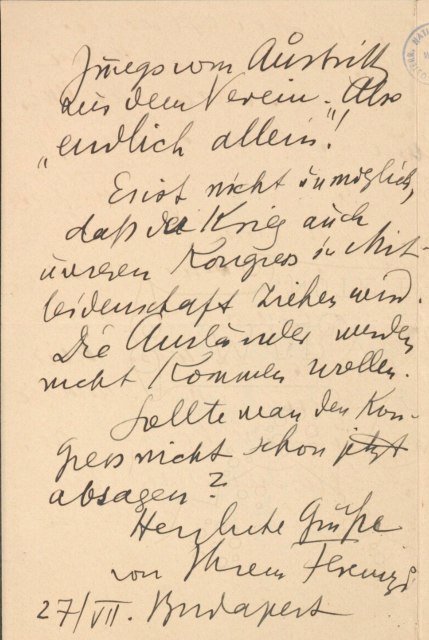 Jungs vom Austritt
aus dem Verein. Also
„endlich allein"!
Es ist nicht unmöglich,
daß der Krieg auch
unseren Kongress in Mit-
leidenschaft ziehen wird.
Die Ausländer werden
nicht kommen wollen.
Sollte man den Kon-
gress nicht schon jetzt
absagen?
Herzliche Grüße
von Ihrem Ferenczi
27/VII. Budapest